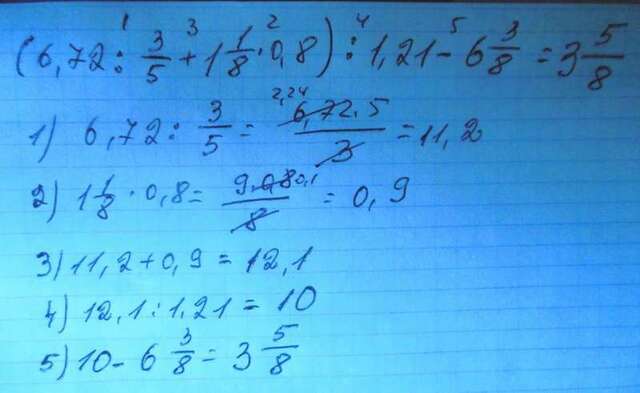 (6,72 : 3/5 + 1 1/8 · 0,8) : 1,21 - 6 3/8 = 3 5/8
1) 6,72 : 3/5 = 6,72 · 5/3 = 11,2
2) 1 1/8 · 0,8 = 9 · 0,8/8 = 0,9
3) 11,2 + 0,9 = 12,1
4) 12,1 : 1,21 = 10
5) 10 - 6 3/8 = 3 5/8